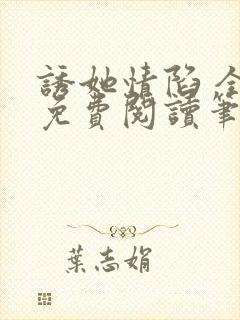 誘她情陷 全
免費閱讀筆
葉志娟